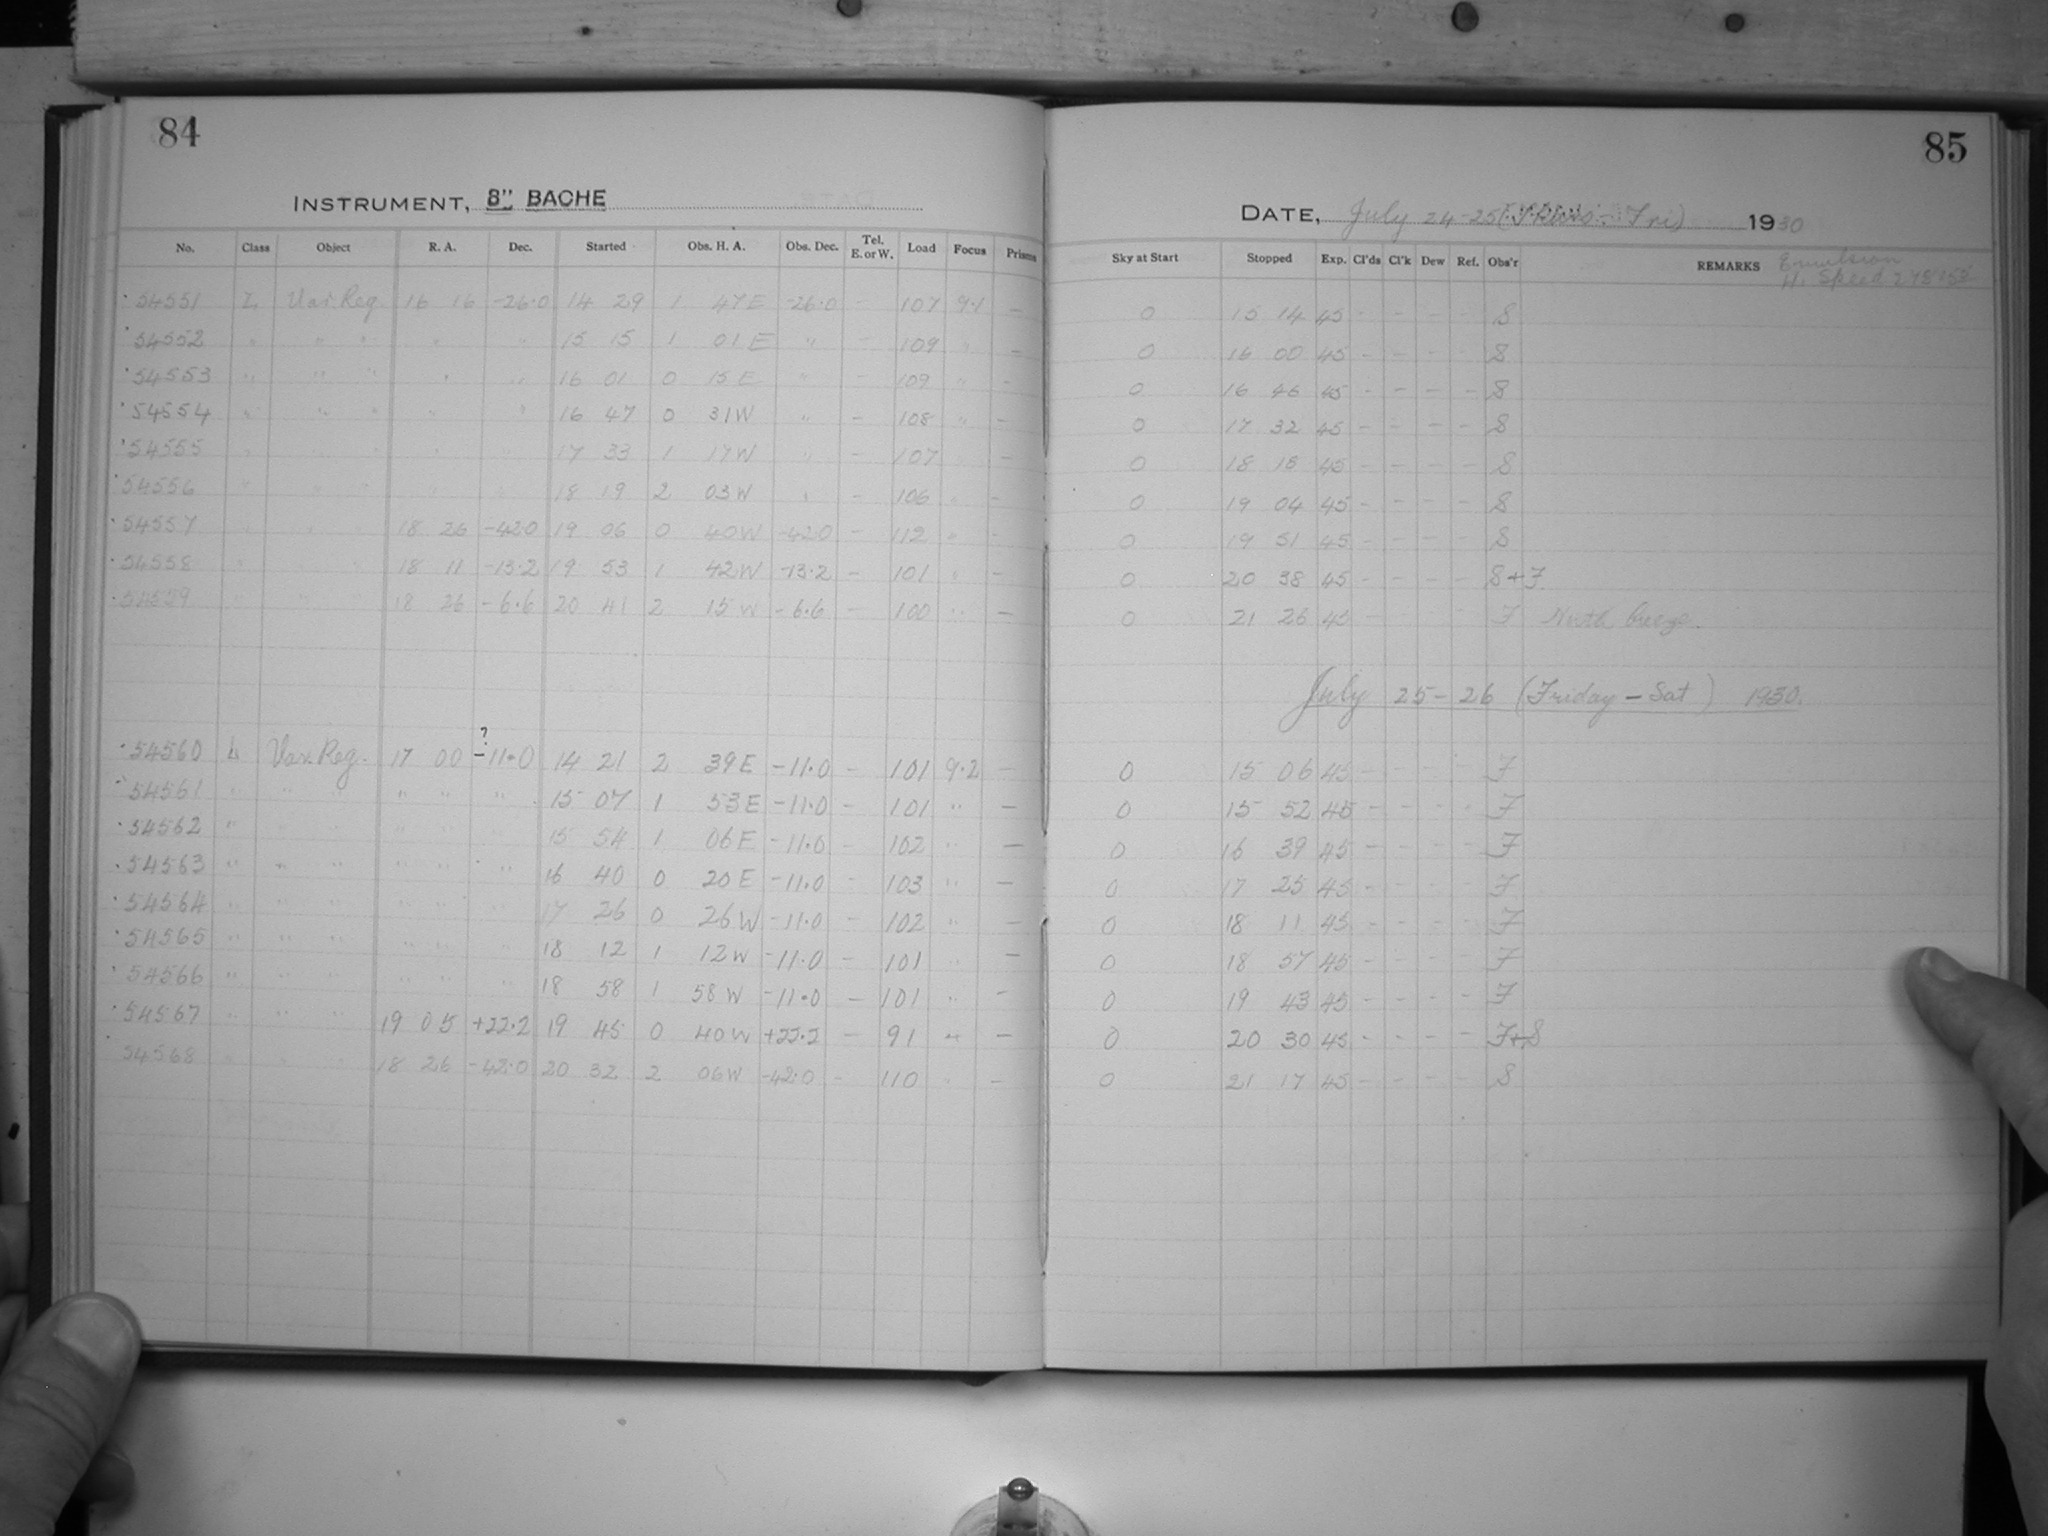 84
INSTRUMENT, 8" BACHE
No. Class Object R. A. Dec. Started Obs. H. A. Obs. Dec. Tel. E. or W. Load Focus Prisms
54551 L Var. Reg. 16 16 -26.0 14 29 1 47 E -26.0 - 107 9.1 -
54552 " " " " " 15 15 1 01 E " - 109 " -
54553 " " " " " 16 01 0 15 E " - 109 " -
54554 " " " " " 16 47 0 31 W " - 108 " -
54555 " " " " " 17 33 1 17 W " - 107 " -
54556 " " " " " 18 19 2 03 W " - 106 " -
54557 " " " 18 26 -42.0 19 06 0 40 W -42.0 - 112 " -
54558 " " " 18 11 -13.2 19 53 1 42 W -13.2 - 101 " -
54559 " " " 18 26 -6.6 20 41 2 15 W -6.6 - 100 " -
?
54560 L Var. Reg. 17 00 -11.0 14 21 2 39 E -11.0 - 101 9.2 -
54561 " " " " " " 15 07 1 53 E -11.0 - 101 " -
54562 " " " " " " 15 54 1 06 E -11.0 - 102 " -
54563 " " " " " " 16 40 0 20 E -11.0 - 103 " -
54564 " " " " " " 17 26 0 26 W -11.0 - 102 " -
54565 " " " " " " 18 12 1 12 W -11.0 - 101 " -
54566 " " " " " " 18 58 1 58 W -11.0 - 101 " -
54567 " " " 19 05 +22.2 19 45 0 40 W +22.2 - 91 " -
54568 " " " 18 26 -42.0 20 32 2 06 W -42.0 - 110 " -
85
DATE, July 24-25 (Thurs. - Fri) 1930
Sky at Start Stopped Exp. Cl'ds Cl'k Dew Ref. Obs'r REMARKS Emulsion
H. Speed
0 15 14 45 - - - - S
0 16 00 45 - - - - S
0 16 46 45 - - - - S
0 17 32 45 - - - - S
0 18 18 45 - - - - S
0 19 04 45 - - - - S
0 19 51 45 - - - - S
0 20 38 45 - - - - S+F
0 21 26 45 - F North breeze.
July 25-26 (Friday - Sat) 1930.
0 15 06 45 - - - - F
0 15 52 45 - - - - F
0 16 39 45 - - - - F
0 17 25 45 - - - - F
0 18 11 45 - - - - F
0 18 57 45 - - - - F
0 19 43 45 - - - - F
0 20 30 45 - - - - F+S
0 21 17 45 - - - - S